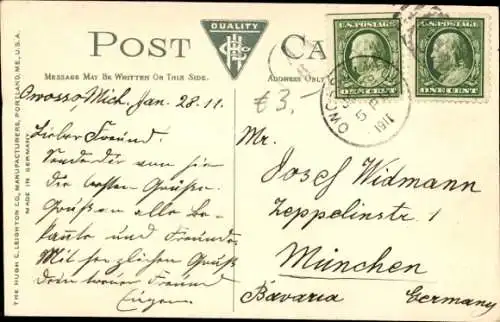 POST CA
QUALITY
HLCo
MESSAGE MAY BE WRITTEN ON THIS SIDE.
ADDRESS ONLY
U.S. POSTAGE
ONE CENT
U.S. POSTAGE
ONE CENT
OWOSSO
5 P
1911
€3,-
Owosso Mich. Jan. 28. 11.
Lieber Freund.
Sende dir von hier
die besten Grüße.
Grüßen alle Be-
kannte und Freunde.
Mit herzlichen Gruß
Dein treuer Freund
Eugen
Mr.
Josef Widmann
Zeppelinstr. 1
München
Bavaria Germany
THE HUGH C. LEIGHTON CO., MANUFACTURERS, PORTLAND, ME., U.S.A.
MADE IN GERMANY